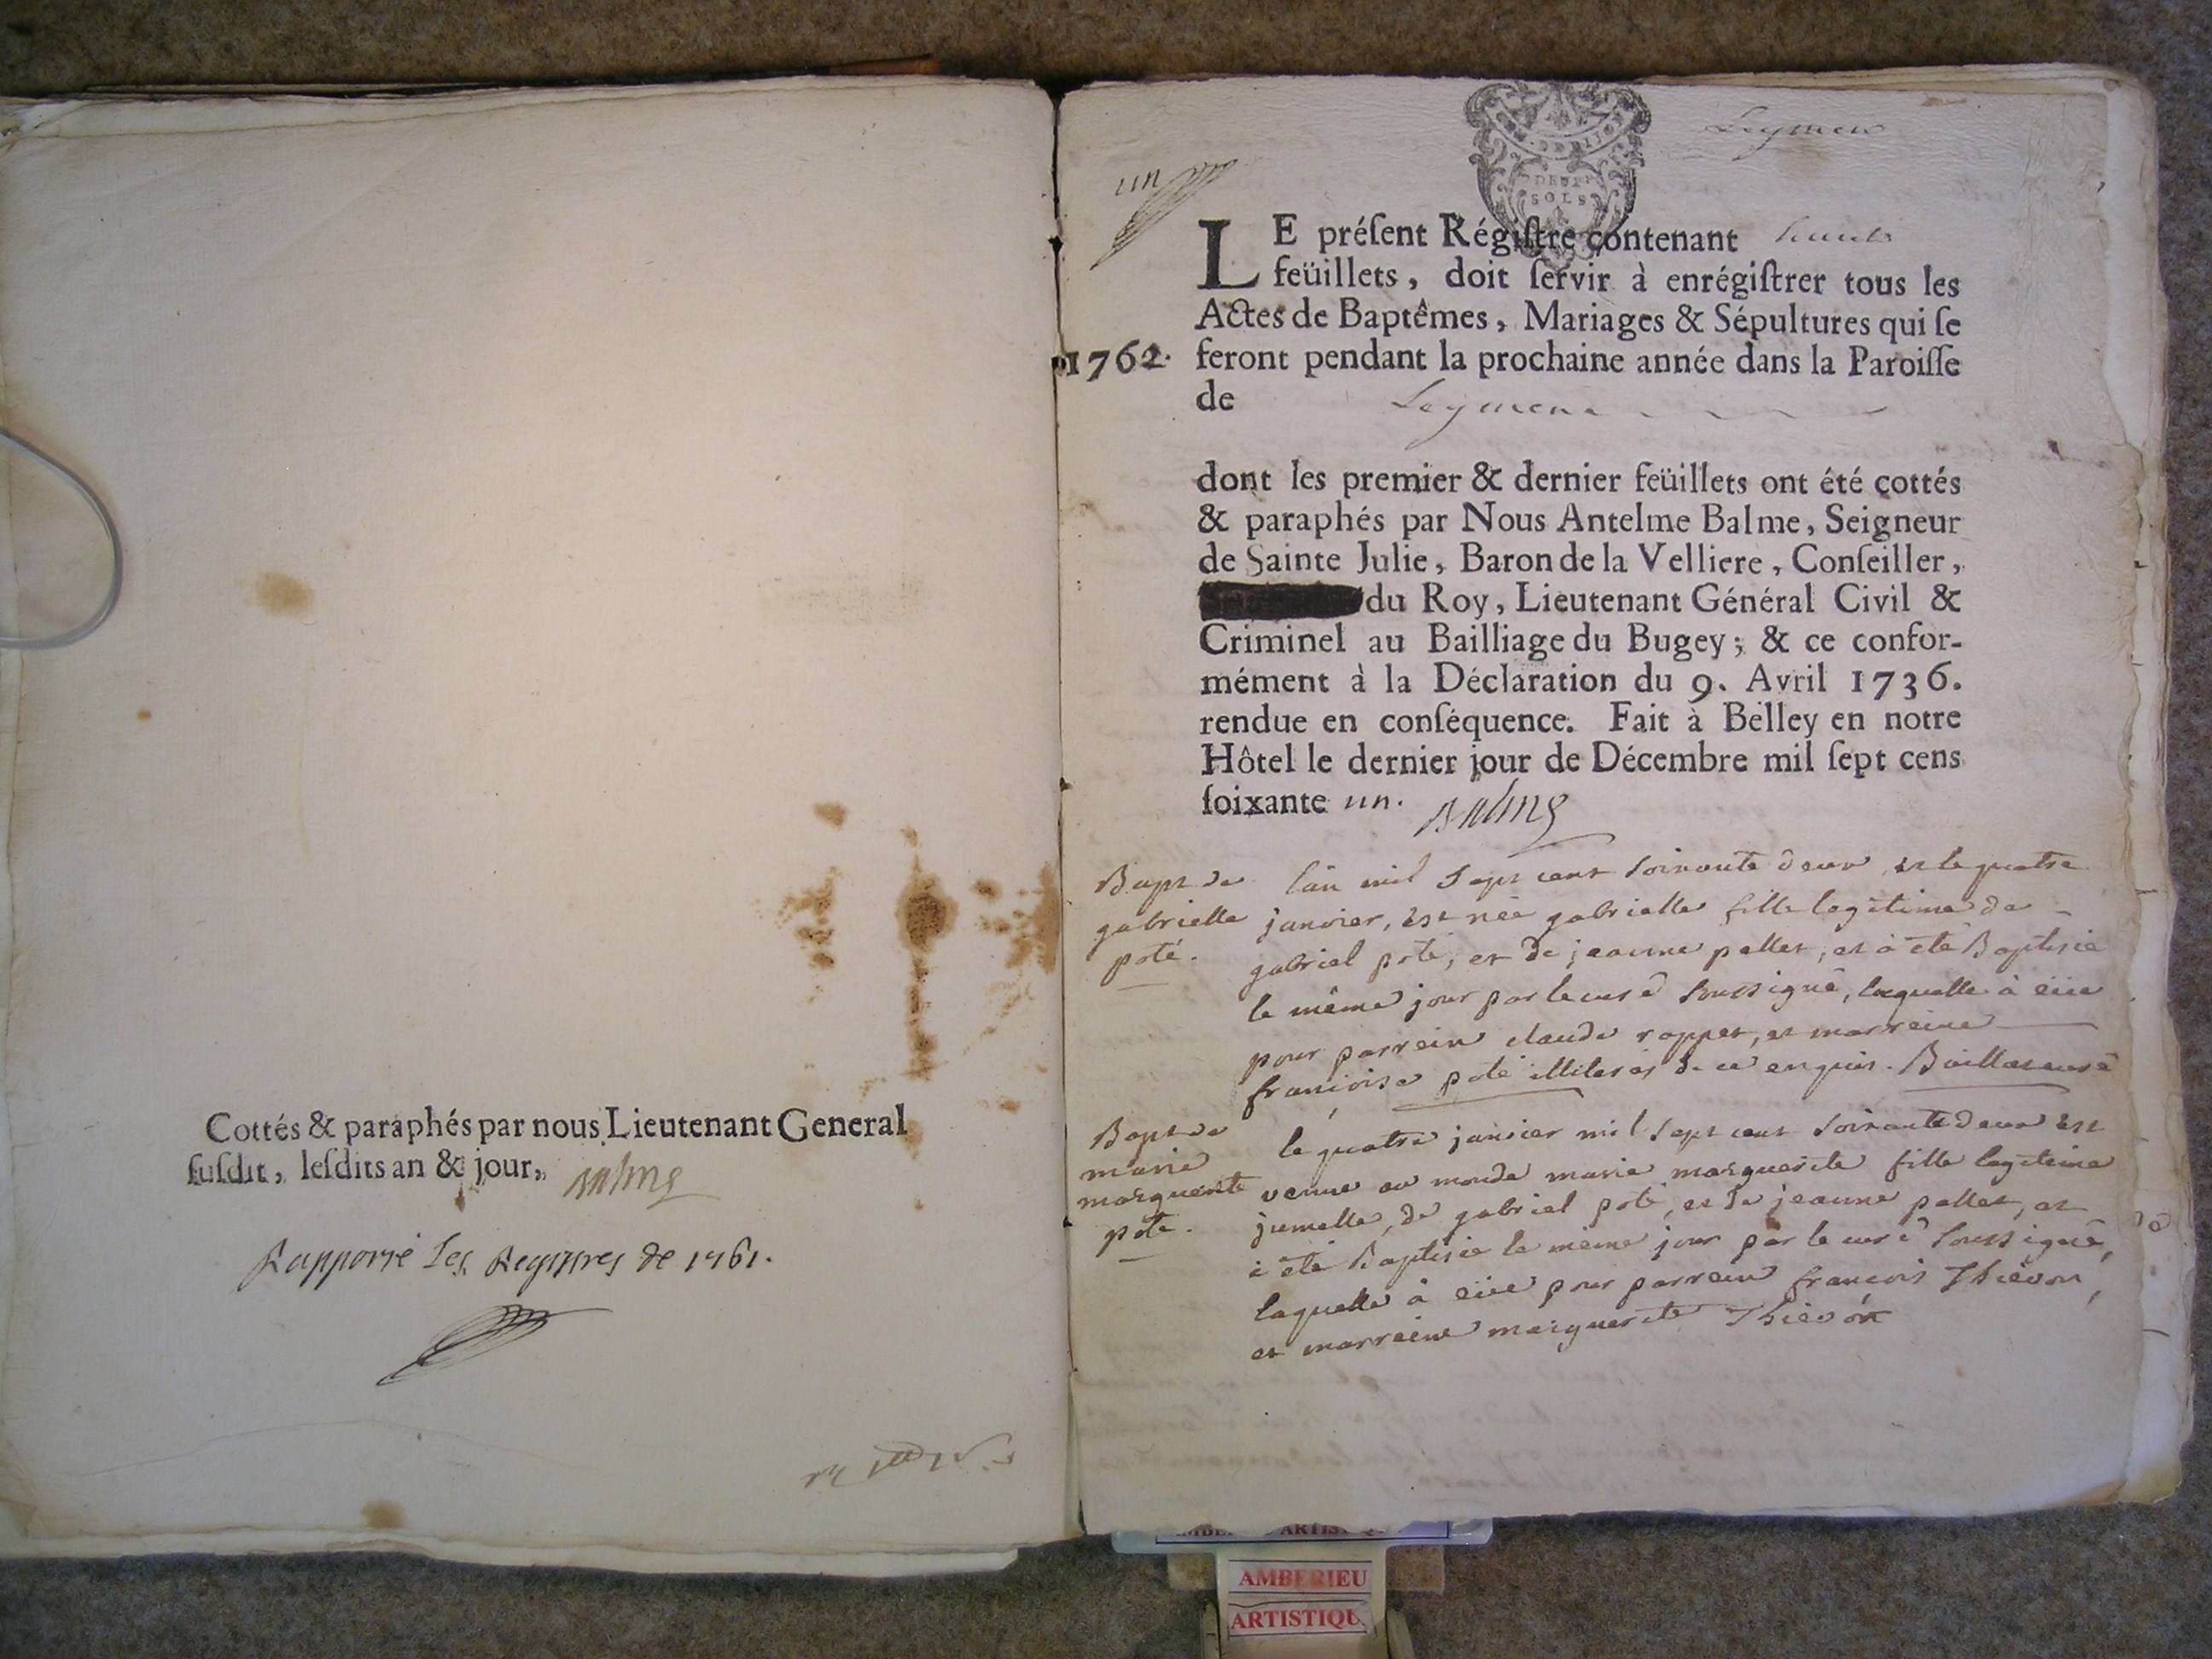 Cottés & paraphés par nous Lieutenant General
susdit, lesdits an & jour, Balme
Rapporté les Registres de 1761.
un
Leymen
DEUX
SOLS
LE présent Régistre contenant huict
feüillets, doit servir à enrégistrer tous les
Actes de Baptêmes, Mariages & Sépultures qui se
1762. feront pendant la prochaine année dans la Paroisse
de Leymen
dont les premier & dernier feüillets ont été cottés
& paraphés par Nous Antelme Balme, Seigneur
de Sainte Julie, Baron de la Velliere, Conseiller,
du Roy, Lieutenant Général Civil &
Criminel au Bailliage du Bugey; & ce confor-
mément à la Déclaration du 9. Avril 1736.
rendue en conséquence. Fait à Belley en notre
Hôtel le dernier jour de Décembre mil sept cens
soixante un. Balme
Bapt de
gabrielle
poté.
l'an mil sept cent soixante deux et le quatre
janvier, est née gabrielle fille legitime de
gabriel poté, et de jeanne pellet, et à été Baptisée
le même jour par le curé soussigné, laquelle à eüe
pour parrein claude roppet, et marreine
francoise poté illiterés de ce enquis. Baillat curé
Bapt de
marie
marguerite
poté.
le quatre janvier mil sept cent soixante deux est
venue au monde marie marguerite fille legitime
jumelle, de gabriel poté, et de jeanne pellet, et
à été Baptisée le même jour par le curé soussigné,
laquelle à eüe pour parrein françois Thiévon,
et marreine marguerite Thiévon
AMBERIEU
ARTISTIQU